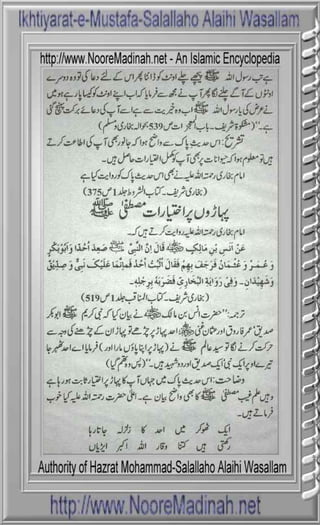 Ikhtiyarat-e-Mustafa-Salallaho Alaihi Wasallam
http://www.NooreMadinah.net - An Islamic Encyclopedia
ہے تب رسول اللہ ﷺ پیچھے چلے اونٹ کو ڈانٹا پھر اس کے لئے دعا کی تو وہ دوسرے
اونٹوں کے آگے چلنے لگا پھر آپ نے مجھ سے فرمایا کہ اب اپنے اونٹ کو کیسا پا رہے ہو میں
نے عرض کی یا رسول اللہ اب وہ خیریت سے ہے اسے آپ کی دعا کی برکت پہنچ گئی
ہے۔" (مشکوٰۃ شریف۔ باب المعجزات ص 539 بحوالہ بخاری و مسلم)
تشریح: اس حدیث پاک سے واضح ہوا کہ جانور بھی آپ کی اطاعت کرتے
ہیں تو معلوم ہوا کہ حیوانات پر بھی آپ کو مکمل اختیارات حاصل ہیں۔
امام بخاری رحمۃ اللہ علیہ نے بھی اس حدیث پاک کو روایت کیا ہے
(بخاری شریف۔ کتاب الشروط جلد 1 ص 375)
پہاڑوں پر اختیارات مصطفیٰ ﷺ
امام بخاری رحمۃ اللہ علیہ روایت کرتے ہیں کہ۔
عَنْ اَنَسِ بْنِ مَالِكٍ ﷺ قَالَ اِنَّ النَّبِيَّ ﷺ صَعِدَ اُحُدًا وَاَبُوْبَكْرٍ
وَعُمَرُ وَعُثْمَانُ فَرَجَفَ بِهِمْ فَقَالَ اثْبُتْ اُحُدُ فَاِنَّمَا عَلَيْكَ نَبِيٌّ وَصِدِّيْقٌ
وَشَهِيْدَانِ۔ وَفِيْ رِوَايَةِ الْبُخَارِيِّ فَضَرَبَهُ بِرِجْلِهٖ۔
(بخاری شریف۔ کتاب المناقب جلد 1 ص 519)
ترجمہ: "حضرت انس بن مالک نے بیان کیا کہ نبی کریم ﷺ ابوبکر
صدیق عمر فاروق اور عثمان غنی احد پہاڑ پر چڑھے تو پہاڑ ان کے چڑھنے کی وجہ سے
حرکت کرنے لگا تو سید عالم ﷺ نے (پہاڑ پر اپنا پاؤں مارا اور) فرمایا اے احد ٹھہر جا
تیرے اوپر ایک نبی ایک صدیق اور دو شہید ہیں۔"
وضاحت: اس حدیث پاک میں جہاں آپ کا پہاڑ پر اختیار ثابت ہو رہا ہے
وہیں علم غیب مصطفیٰ ﷺ کا بھی واضح بیان ہے۔ اعلیٰ حضرت رحمۃ اللہ علیہ کیا خوب
فرماتے ہیں۔
ایک ٹھوکر میں احد کا زلزلہ جاتا رہا
رکھتی ہیں کتنا وقار اللہ اکبر ایڑیاں
Authority of Hazrat Mohammad-Salallaho Alaihi Wasallam
http://www.NooreMadinah.net